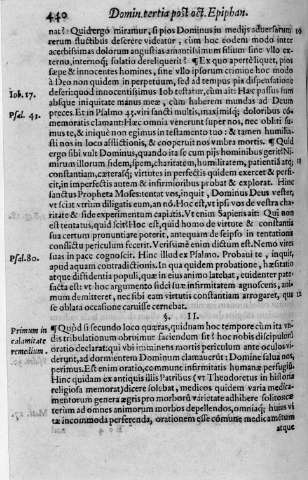 440 Domin. tertia post oct. Epiphan.
nat? Quid ergo miramur, si pios Dominus in medijs aduersarum
rerum fluctibus deserere videatur, cum hoc eodem modo inter
acerbissimos dolorum angustias amantissimum filium sine vllo exter-
no, internoq; solatio dereliquerit? ¶ Ex quo apertè liquet, pios
sæpe & innocentes homines, sine vllo ipsorum crimine hoc modo
à Deo non quidem in perpetuum, sed ad tempus pia dispensatione
Iob. 17. deseri: quod innocentissimus Iob testatur, cùm ait: Hæc passus sum
absque iniquitate manus meæ, cùm haberem mundas ad Deum
Psal. 43. preces. Et in Psalmo 43. viri sancti multis, maximisq; doloribus cō-
memoratis clamant: Hæc omnia venerunt super nos, nec obliti su-
mus te, & iniquè non egimus in testamento tuo: & tamen humilia-
sti nos in loco afflictionis, & cooperuit nos vmbra mortis. ¶ Quid
ergo sibi vult Dominus, quando ita se cum pijs hominibus gerit? Ni-
mirum illorum fidem, spem, charitatem, humilitatem, patientiā atq;
constantiam, cæterasq; virtutes in perfectis quidem exercet & perfi-
cit, in imperfectis autem & infirmioribus probat & explorat. Hinc
sanctus Propheta Moses tentat vos, inquit, Dominus Deus vester,
vt sciat vtrum diligatis eum, an nō. Hoc est, vt ipsi vos de vestra cha-
ritate & fide experimentum capiatis. Vt enim Sapiens ait: Qui non
est tentatus, quid scit? Hoc est, quid homo de virtute & constantia
sua certum pronuntiare poterit, antequam de seipso in tentationis
conflictu periculum fecerit. Verissimè enim dictum est. Nemo vires
Psal. 80. suas in pace cognoscit. Hinc illud ex Psalmo. Probaui te, inquit,
apud aquam contradictionis. In qua quidem probatione, hæsitatio
atque diffidentia populi, quæ in eius animo latebat, euidenter pate-
facta est: vt hoc argumento sidei suæ infirmitatem agnoscens, ani-
mum demitteret, nec sibi eam virtutis constantiam arrogaret, qua
se oblata occasione caruisse cernebat.
§. II.
Primum in ¶ Quòd si secundo loco quæras, quidnam hoc tempore cùm ita vn-
calamitate dis tribulationum obruimur faciendum sit? hoc nobis discipulorū
remedium. oratio declarat: qui vbi imminens mortis periculum ante oculos vi-
derunt, ad dormientem Dominum clamauerūt: Domine salua nos,
perimus. Est enim oratio, commune infirmitatis humanæ perfugiū.
Hinc quidam ex antiquis illis Patribus (vt Theodoretus in historia
religiosa memorat) dicere solebat, medicos quidem varia medica-
mentorum genera ægris pro morborū varietate adhibere solitos: cæ-
terùm ad omnes animorum morbos depellendos, omniaq; huius vi-
tæ incommoda perferenda, orationem esse cōmune medicamētum
atque